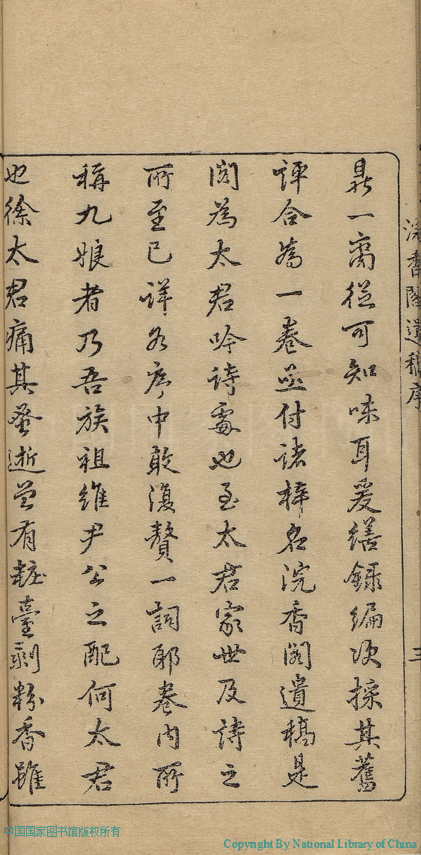 鼎一臠從可知味耳爰繕錄編次採其舊
評合為一卷亟付諸梓名浣香閣遺稿是
閣為太君吟詩處也至太君家世及詩之
所至已詳各序中敢復贅一詞耶卷內所
稱九娘者乃吾族祖維尹公之配何太君
也徐太君痛其蚤逝曾有粧臺剩粉香雖
浣香閣遺稿序
三
中国国家图书馆版权所有
Copyright By National Library of China